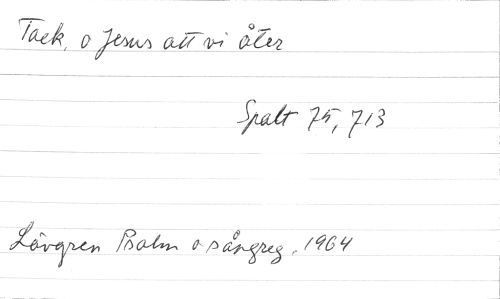 Tack, o Jesus att vi åter
Spalt 75, 713
Lövgren Psalm o sångreg. 1964